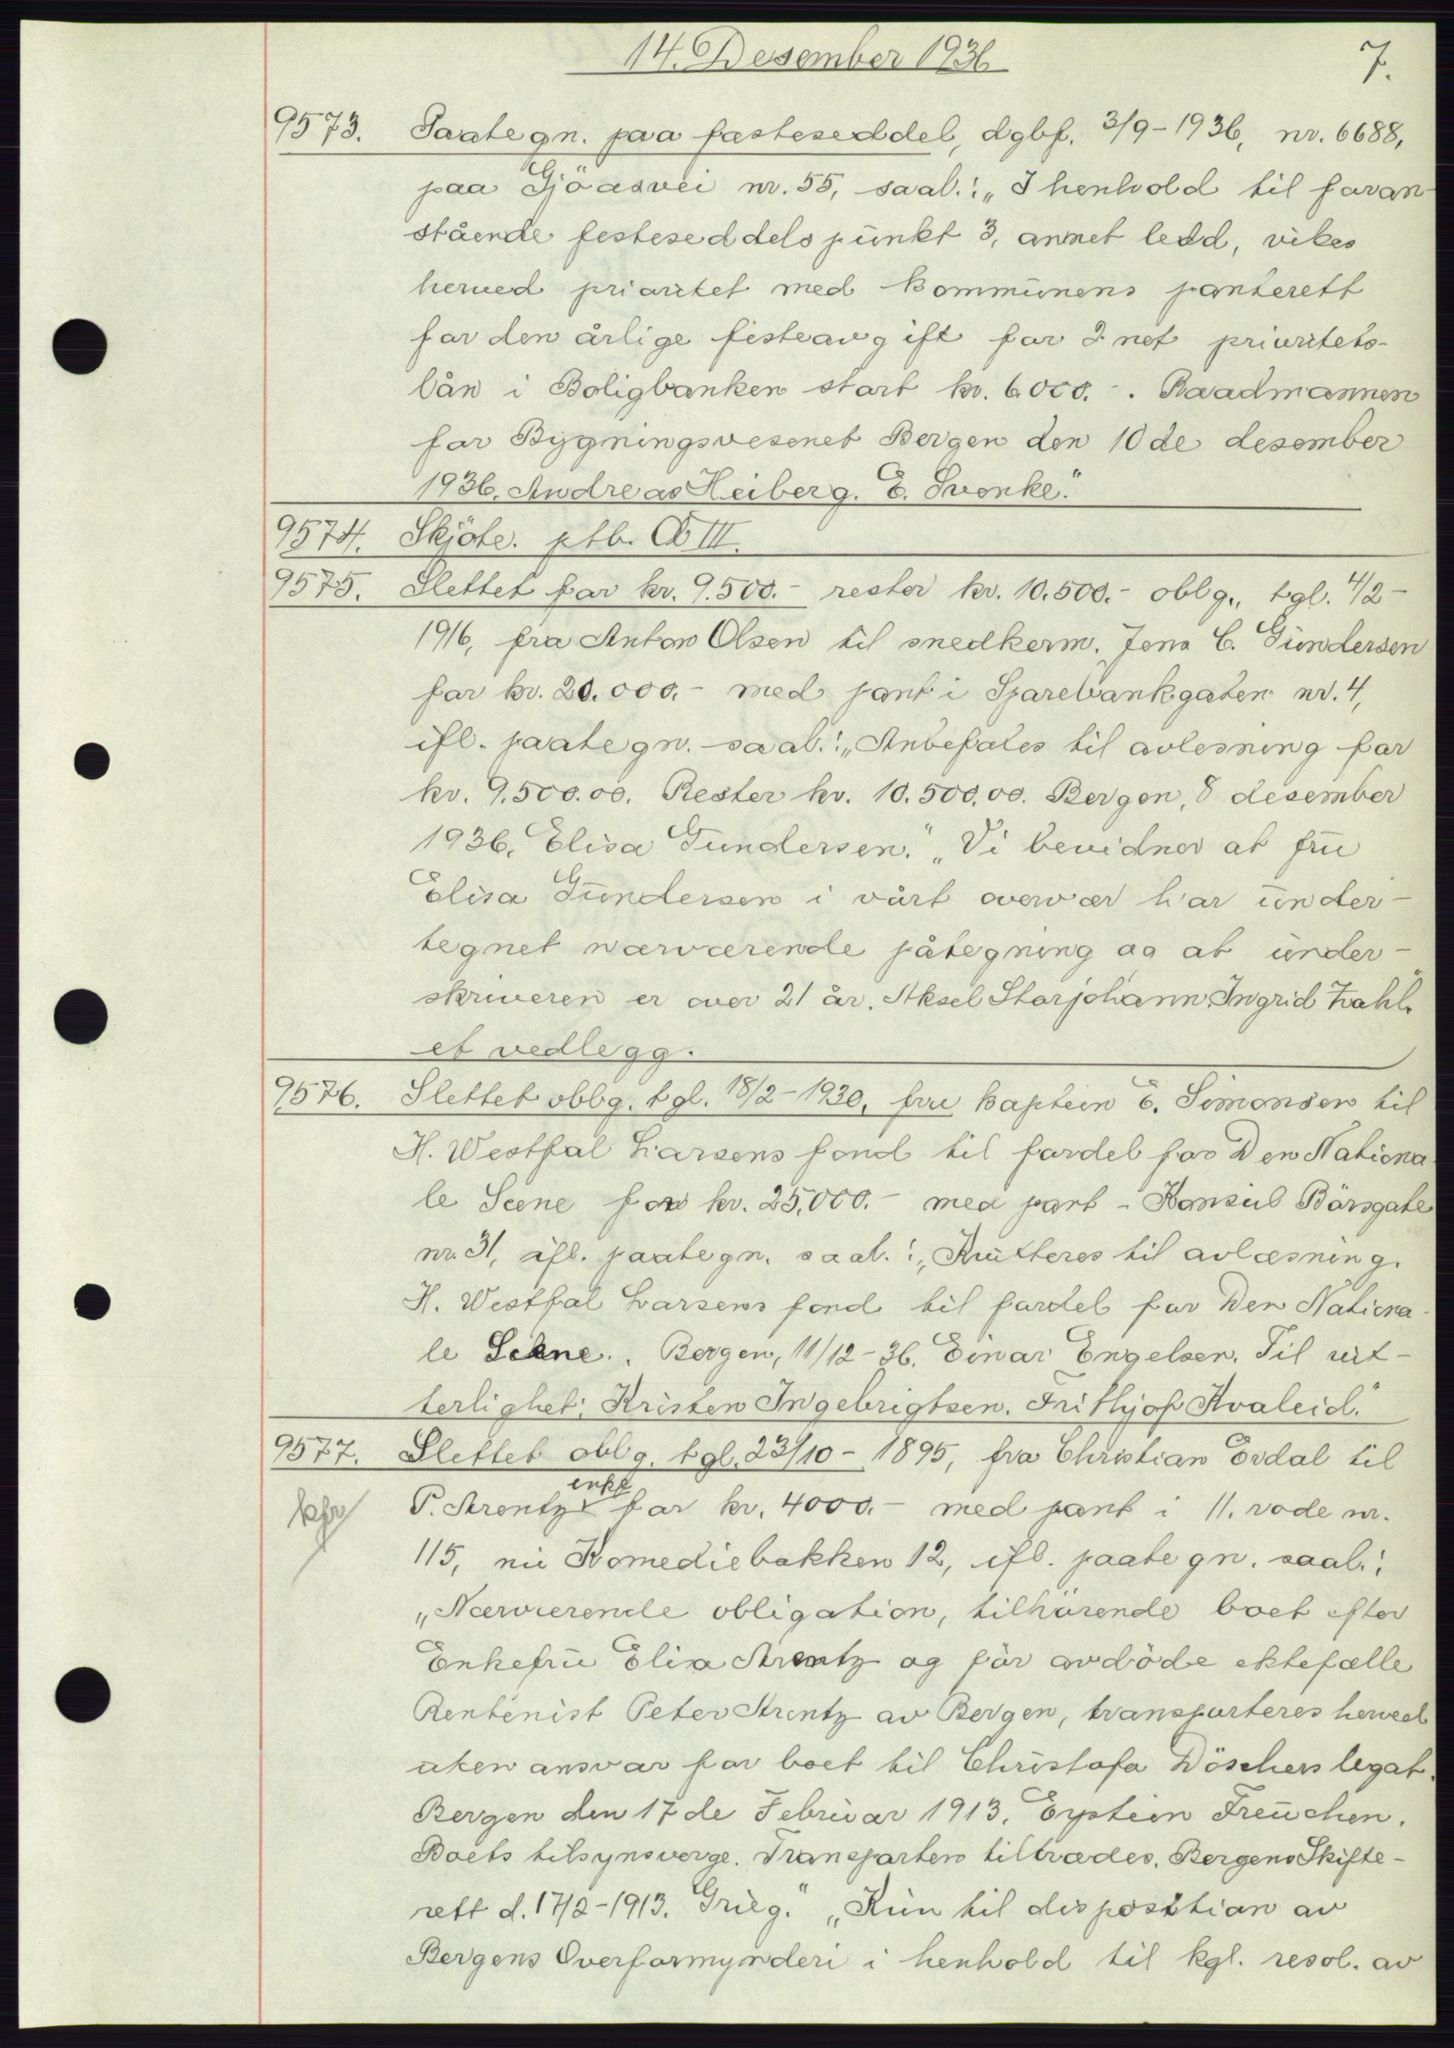 14. Desember 1936
7.
9573. Paategn. paa festeseddel, dgbf. 3/9-1936, nr. 6688,
paa Gjöasvei nr. 55, saal.: „I henhold til foran-
stående festeseddels punkt 3, annet ledd, vikes
herved prioritet med kommunens panterett
for den årlige festeavgift for 2net prioritets-
lån i Boligbanken stort kr. 6.000.-. Raadmannen
for Bygningsvesenet Bergen den 10de desember
1936. Andreas Heiberg. E. Svenke."
9574. Skjöte. ptb. Cb III.
9575. Slettet for kr. 9.500.- rester kr. 10.500.- oblg., tgl. 4/2-
1916, fra Anton Olsen til snedkerm. Jens C. Gundersen
for kr. 20.000.- med pant i Sparebankgaten nr. 4,
ifl. paategn. saal.: „Anbefales til avlesning for
kr. 9.500.00. Rester kr. 10.500.00. Bergen, 8 desember
1936. Elisa Gundersen." „Vi bevidner at fru
Elisa Gundersen i vårt overvær har under-
tegnet nærværende påtegning og at under-
skriveren er over 21 år. Aksel Storjohann. Ingrid Kahl."
et vedlegg.
9576. Slettet oblg. tgl. 18/2-1930, fra kaptein E. Simonsen til
H. Westfal Larsens fond til fordel for Den Nationa-
le Scene for kr. 25.000.- med pant i Konsul Börsgate
nr. 31, ifl. paategn. saal.: „Kvitteres til avlæsning.
H. Westfal Larsens fond til fordel for Den Nationa-
le Scene. Bergen, 11/12-36. Einar Engelsen. Til vit-
terlighet: Kristen Ingebrigtsen. Frithjof Kvaleid."
9577. Slettet oblg. tgl. 23/10-1895, fra Christian Evdal til
enke
P. Arentz for kr. 4000.- med pant i 11. rode nr.
115, nu Komediebakken 12, ifl. paategn. saal.:
„Nærværende obligation, tilhörende boet efter
Enkefru Elisa Arentz og för avdöde ektefælle
Rentenist Peter Arentz av Bergen, transporteres herved
uten ansvar for boet til Christofa Döschers legat.
Bergen den 17de Februar 1913. Eystein Freuchen.
Boets tilsynsverge. Transporten tiltrædes. Bergens Skifte-
rett d. 17/2-1913. Grieg." „Kun til disposition av
Bergens Overformynderi i henhold til kgl. resol. av